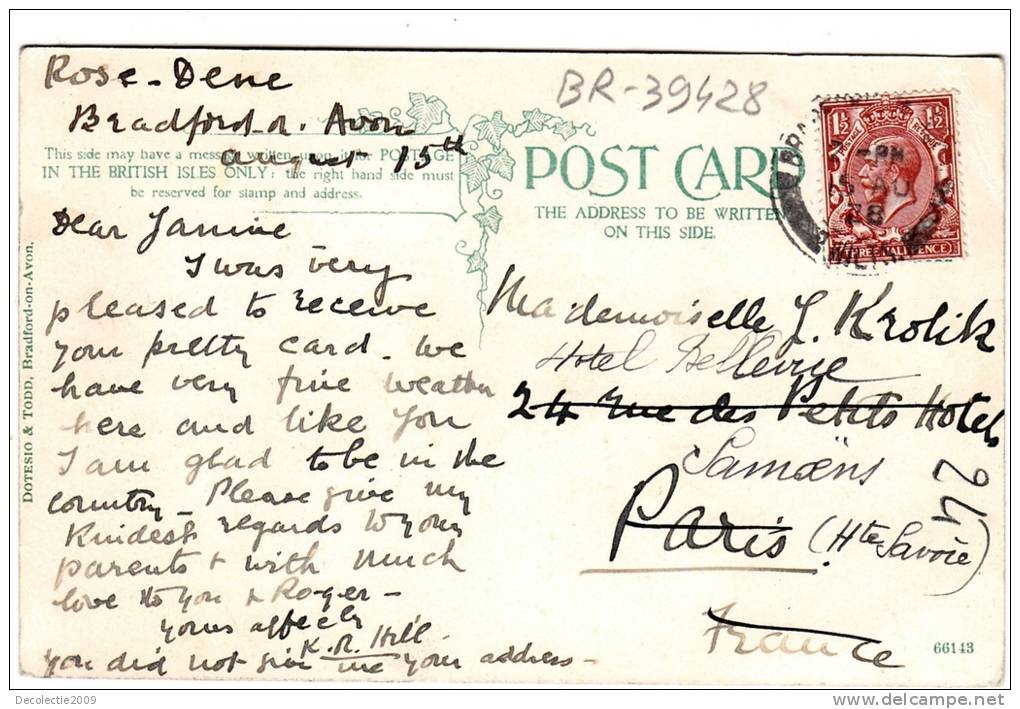 Rose-Dene
Bradford-o. Avon
August 15th
BR-39428
This side may have a message written upon it for POSTAGE
IN THE BRITISH ISLES ONLY: the right hand side must
be reserved for stamp and address.
POST CARD
THE ADDRESS TO BE WRITTEN
ON THIS SIDE.
1½ 1½
POSTAGE REVENUE
THREE HALFPENCE
PM
15 AU
28
WILTS
DOTESIO & TODD, Bradford-on-Avon.
Dear Janine
I was very
pleased to receive
your pretty card. We
have very fine weather
here and like you
I am glad to be in the
country - Please give my
Kindest regards to your
parents & with much
love to you & Roger -
yours affecly
K. R. Hill
you did not give me your address -
Mademoiselle J. Krolik
Hotel Bellevue
24 rue des Petits Hotels
Samoëns
Paris (Hte Savoie)
France
74
66143
Decolectie2009